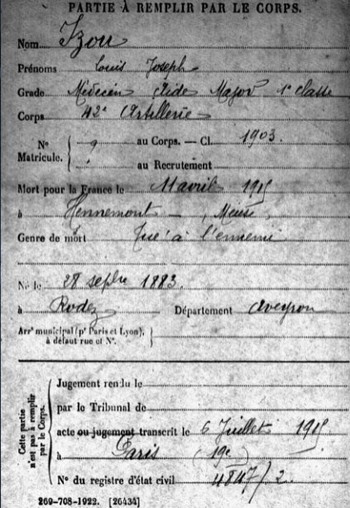 PARTIE À REMPLIR PAR LE CORPS.
Nom Izou
Prénoms Louis Joseph
Grade Médecin Aide Major 1e classe
Corps 42e Artillerie
N° Matricule. { 9 au Corps. — Cl. 1903.
" au Recrutement
Mort pour la France le 11 avril 1915
à Hennemont - Meuse
Genre de mort Tué à l'ennemi
Né le 28 septbre 1883
à Rodez Département Aveyron
Arrt municipal (pr Paris et Lyon), à défaut rue et N°.
Cette partie n'est pas à remplir par le Corps.
Jugement rendu le
par le Tribunal de
acte ou jugement transcrit le 6 Juillet 1915
à Paris (19e)
N° du registre d'état civil 4847/2.
269-708-1922. [26434]